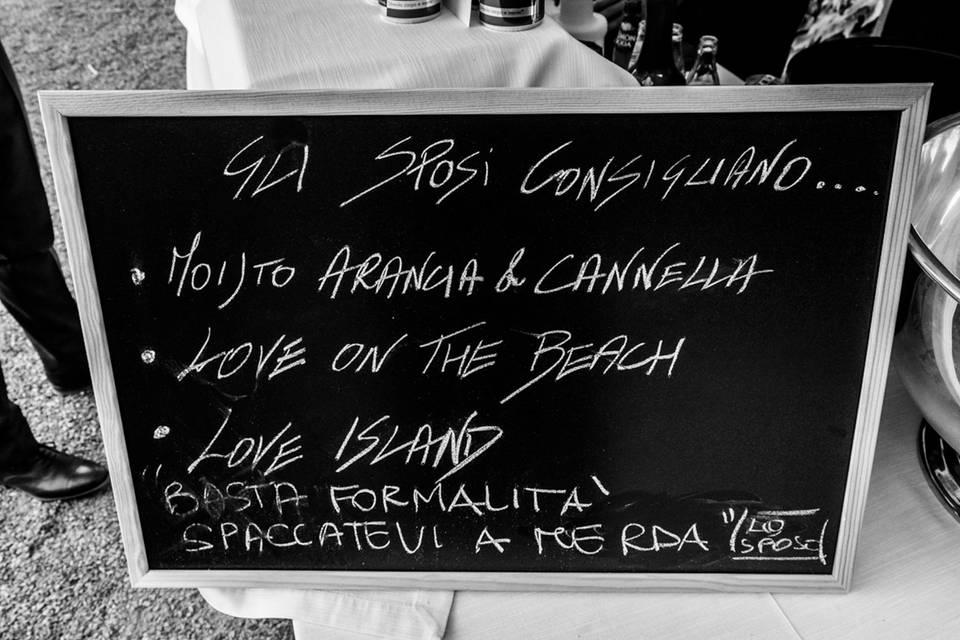 GLI SPOSI CONSIGLIANO....
• MOIJTO ARANCIA & CANNELLA
• LOVE ON THE BEACH
• LOVE ISLAND
"BASTA FORMALITA'
SPACCATEVI A MERDA" LO
SPOSO